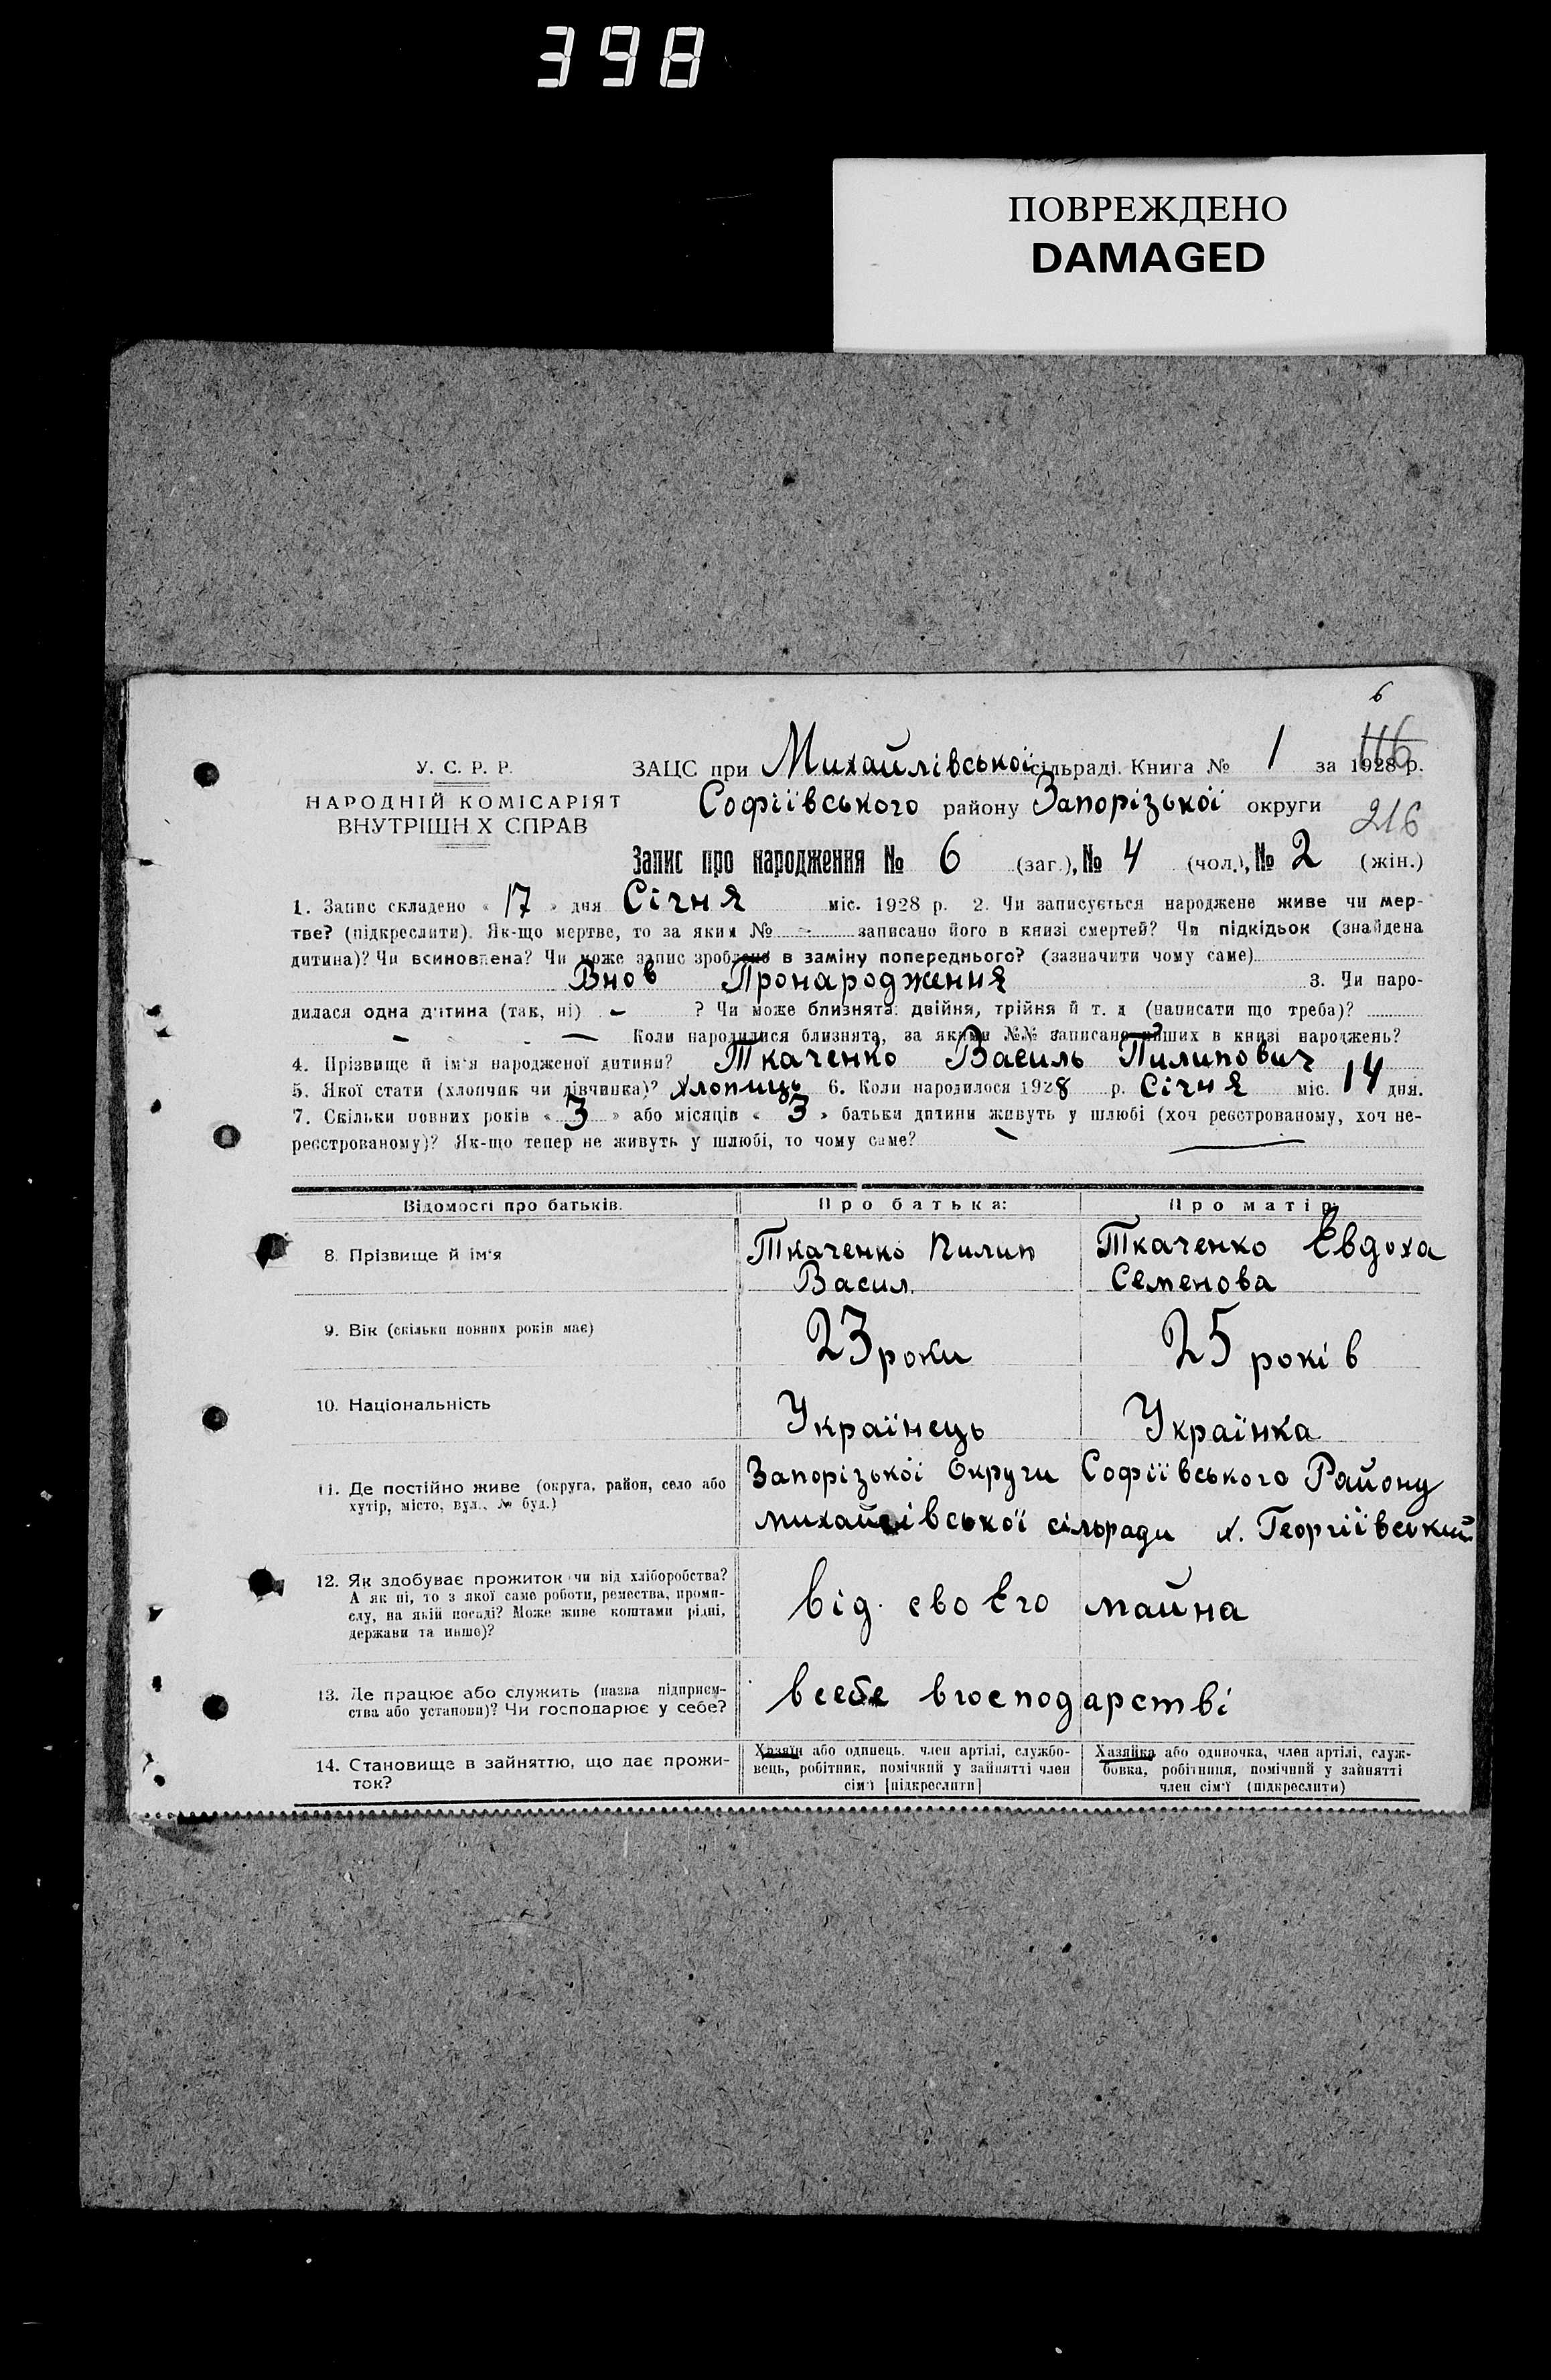 398
ПОВРЕЖДЕНО
DAMAGED
6
116
У. С. Р. Р.
НАРОДНІЙ КОМІСАРІЯТ
ВНУТРІШН Х СПРАВ
ЗАЦС при Михайлівської сільраді. Книга № 1 за 1928 р.
Софіївського району Запорізької округи
216
Запис про народження № 6 (заг.), № 4 (чол.), № 2 (жін.)
1. Запис складено « 17 » дня Січня міс. 1928 р. 2. Чи записується народжене живе чи мер-
тве? (підкреслити). Як-що мертве, то за яким № - записано його в книзі смертей? Чи підкідьок (знайдена
дитина)? Чи всиновлена? Чи може запис зроблено в заміну попереднього? (зазначити чому саме)
Внов Пронародження 3. Чи наро-
дилася одна дитина (так, ні) - ? Чи може близнята: двійня, трійня й т. д (написати що треба)?
- — Коли народилися близнята, за якими №№ записано инших в книзі народжень?
4. Прізвище й ім'я народженої дитини? Ткаченко Василь Пилипович
5. Якої стати (хлопчик чи дівчинка)? хлопиць 6. Коли народилося 1928 р. Січня міс. 14 дня.
7. Скільки повних років « 3 » або місяців « 3 » батьки дитини живуть у шлюбі (хоч реєстрованому, хоч не-
реєстрованому)? Як-що тепер не живуть у шлюбі, то чому саме? —
Відомості про батьків. Про батька: Про матір:
8. Прізвище й ім'я Ткаченко Пилип Ткаченко Евдоха
Васил. Семенова
9. Вік (скільки повних років має) 23 роки 25 років
10. Національність Українець Українка
11. Де постійно живе (округа, район, село або
хутір, місто, вул., № буд.)
Запорізької Округи Софіївського Району
михайлівської сільради х. Георгіївський
12. Як здобуває прожиток чи від хліборобства?
А як ні, то з якої саме роботи, ремества, проми-
слу, на якій посаді? Може живе коштами рідні,
держави та инше)?
від своЕго майна
13. Де працює або служить (назва підприєм-
ства або установи)? Чи господарює у себе?
всебевгосподарстві
14. Становище в зайняттю, що дає прожи-
ток?
Хазяїн або одинець. член артілі, службо-
вець, робітник, помічний у зайнятті член
сім'ї [підкреслити]
Хазяйка або одиночка, член артілі, служ-
бовка, робітниця, помічний у зайнятті
член сім'ї (підкреслити)